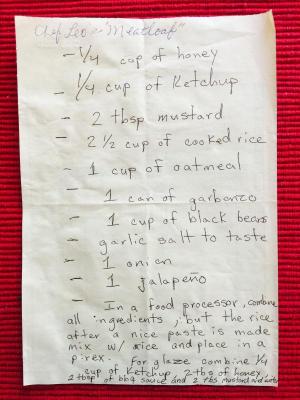 Chef Leo's "Meatloaf"
- 1/4 cup of honey
- 1/4 cup of Ketchup
- 2 tbsp mustard
- 2 1/2 cup of cooked rice
- 1 cup of oatmeal
- 1 can of garbanzo
- 1 cup of black beans
- garlic salt to taste
- 1 onion
- 1 jalapeño
- In a food processor, combine
all ingredients, but the rice
after a nice paste is made
mix w/ rice and place in a
pirex. For glaze combine 1/4
cup of Ketchup, 2 tbs of honey
2 tbsp of bbq sauce and 2 tbs mustard